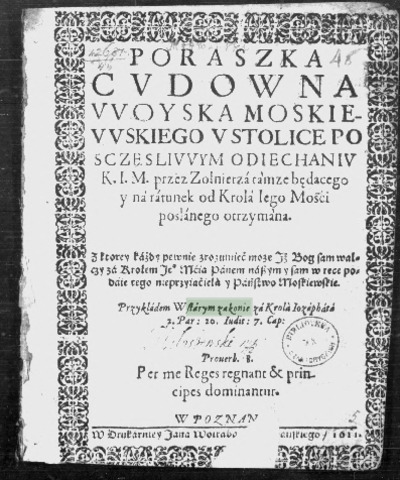 PORASZKA
CVDOWNA
VVOYSKA MOSKIE-
VVSKIEGO V STOLICE PO
SCZESLIVVYM ODIECHANIV
K. I. M. przez Zolnierzá támże będącego
y ná rátunek od Krolá Iego Mości
posłánego otrzymána.
Z ktorey káżdy pewnie zrozumieć może Iż Bog sam wal-
czy zá Krolem Je° Mćia Pánem nászym y sam w ręce po-
daie tego nieprzyiacielá y Páństwo Moskiewskie.
Przykłádem W stárym zakonie zá Krolá Iozáphátá
2. Par: 20. Iudit: 7. Cap:
Prouerb. 8.
Per me Reges regnant & prin-
cipes dominantur.
W POZNAN
W Drukárniey Jana Wolrabo
1611.
BIBLIOTEKA